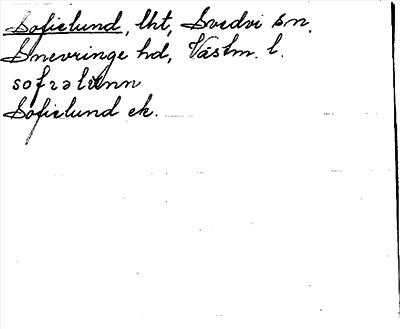 Sofielund, lht, Svedvi sn,
Snevringe hd, Västm. l.
Sofielund ek.